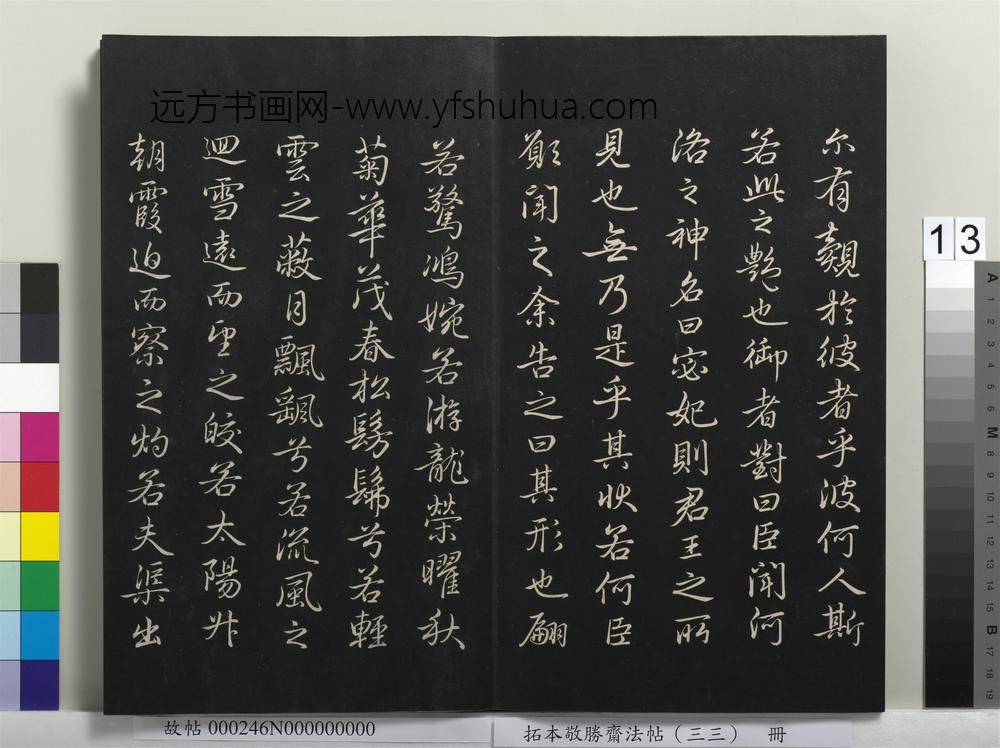 远方书画网-www.yfshuhua.com
尔有觌於彼者乎波何人斯
若此之艷也御者對曰臣聞河
洛之神名曰宓妃則君王之所
見也無乃是乎其狀若何臣
願聞之余告之曰其形也翩
若驚鴻婉若游龍榮曜秋
菊華茂春松髣髴兮若輕
雲之蔽月飄颻兮若流風之
迴雪遠而望之皎若太陽升
朝霞迫而察之灼若夫渠出
13
故帖 000246N000000000
拓本敬勝齋法帖（三三） 冊
A
1
2
3
4
5
6
M
8
9
10
11
12
13
14
15
B
17
18
19